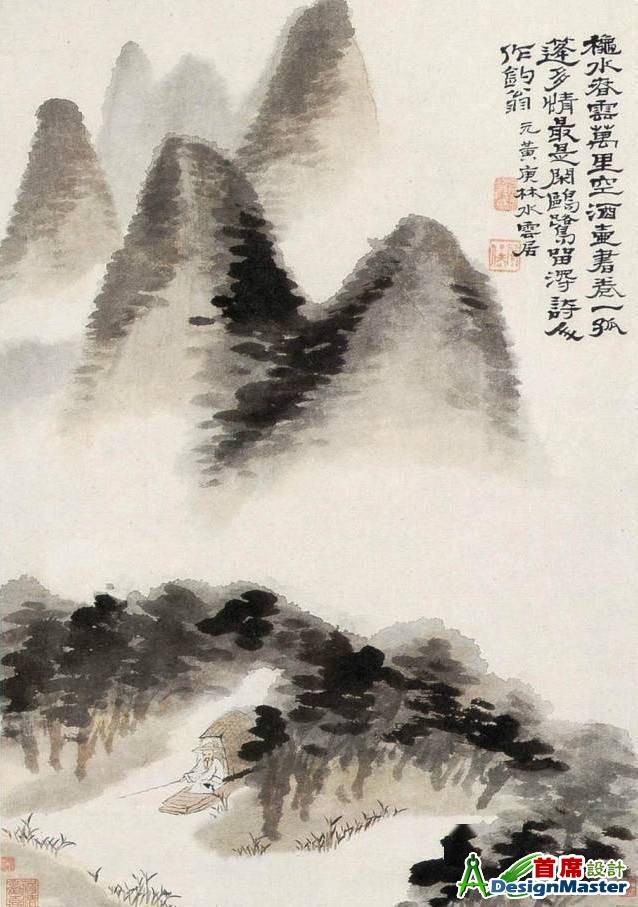 穐水春雲萬里空酒壷書卷一孤
蓬多情最是閑鷗鷺留淂詩人
作釣翁 元黃庚林水雲居
首席設計
DesignMaster